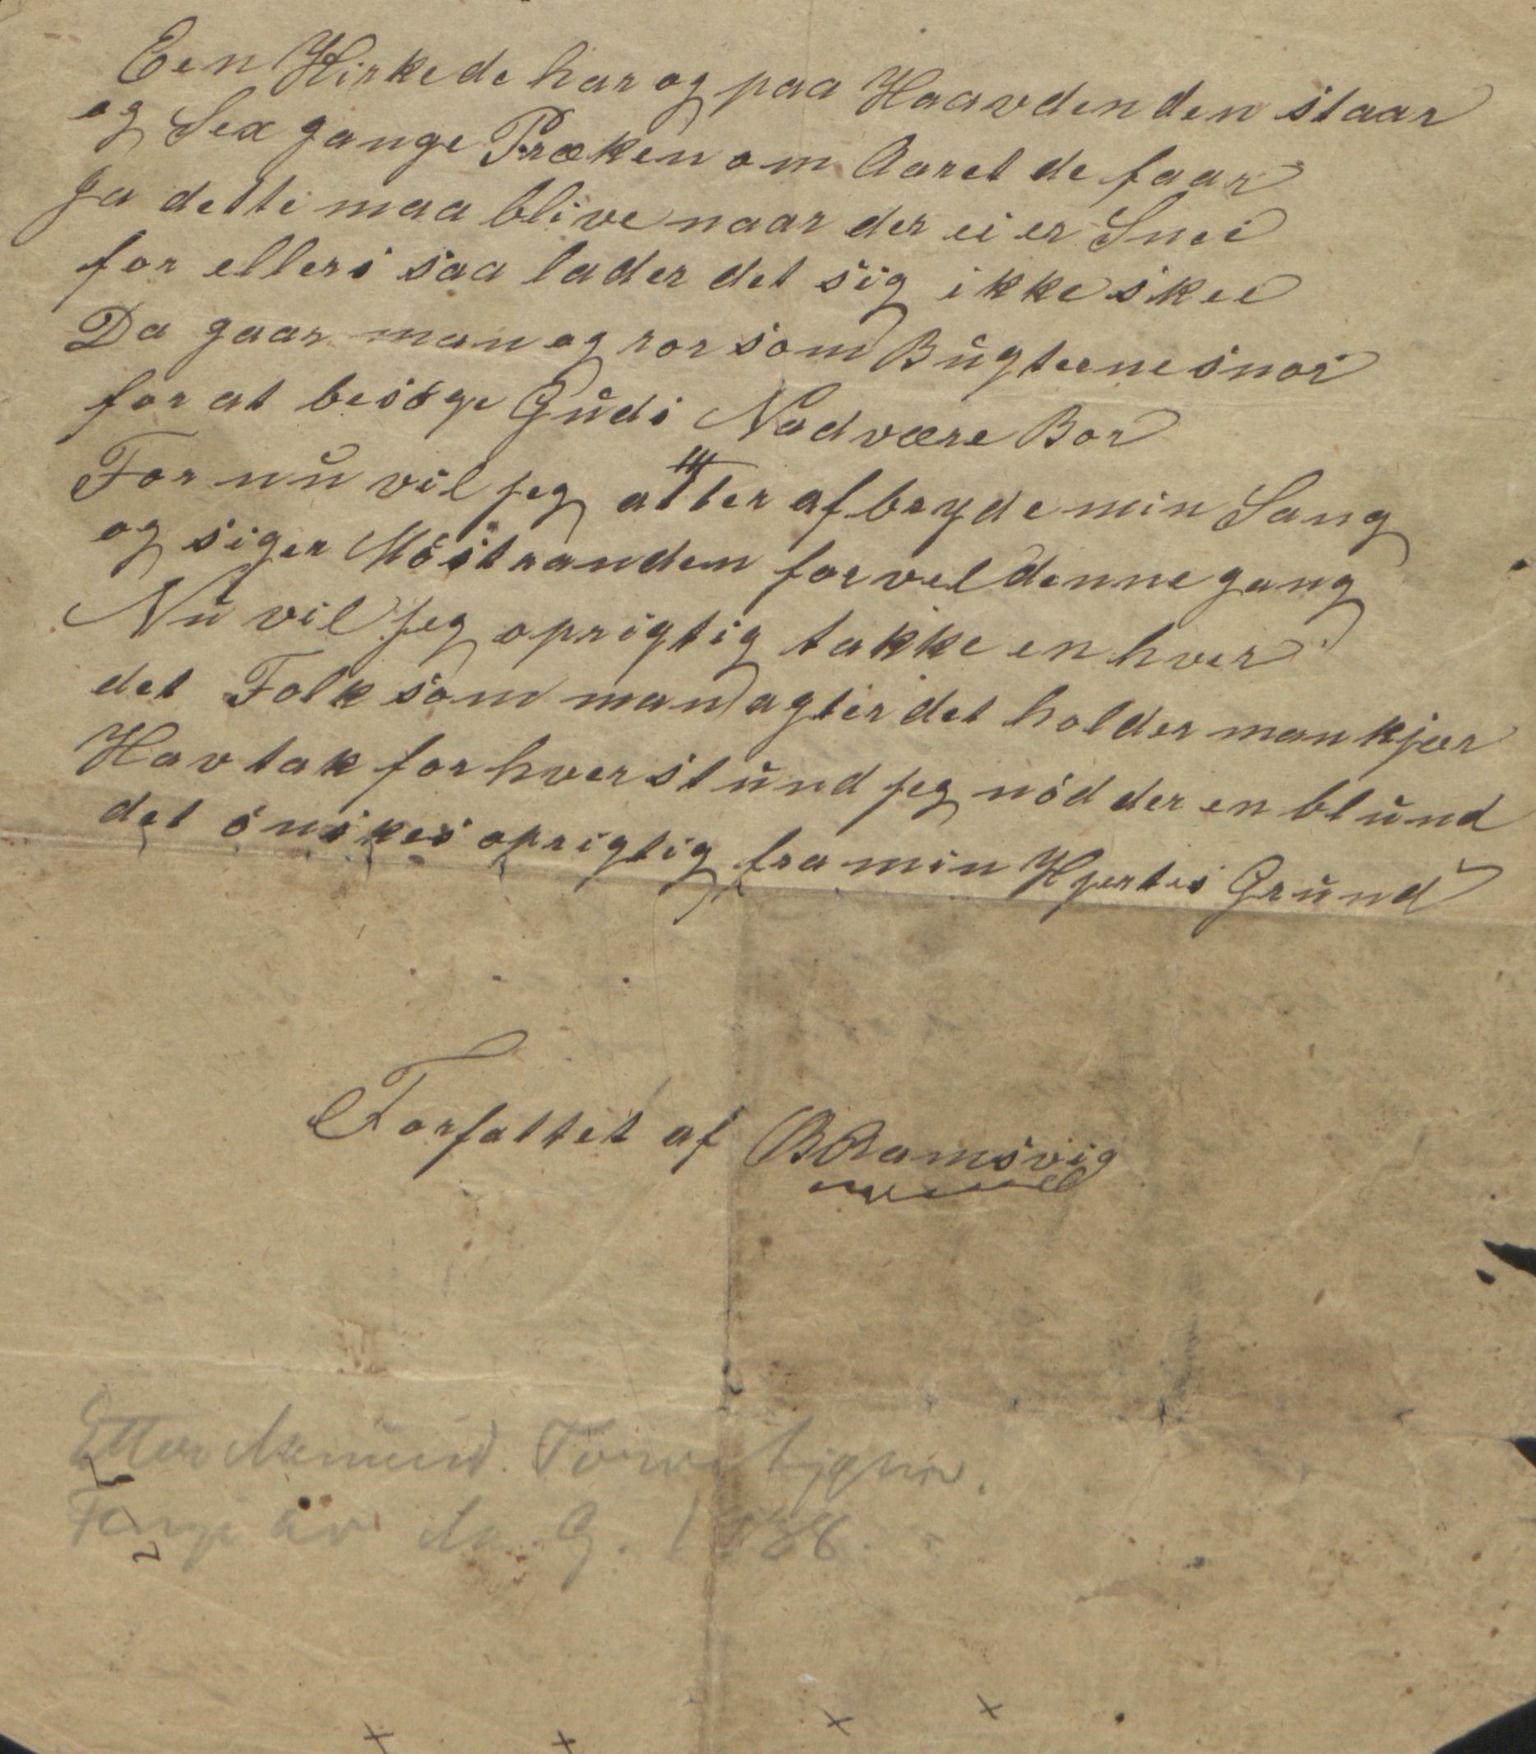 Een Kirke de har og paa Haavden den staar
og Sex gange Præken om Aaret de faar
Ja dette maa blive naar der ei er Snee
for ellers saa lader det sig ikke skee
Da gaar man og ror som Bŭgterne snor
for at besöge Gŭds Nadvære Bor
For nŭ vil jeg atter afbryde min Sang
og siger Möstranden forvel denne gang
Nŭ vil jeg oprigtig takke en hver
det Folk som man agter det holder man kjær
Hav tak for hver stŭnd jeg nöd der en blŭnd
det önskes oprigtig fra min Hjertes Grŭnd
Forfattet af B Ramsvig
Etter
1886.